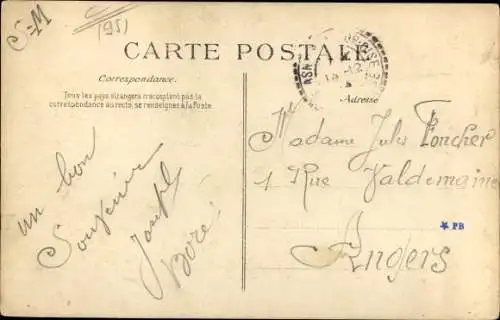 S-M
(95)
CARTE POSTALE
Correspondance.
Tous les pays étrangers n'acceptent pas la
correspondance au recto, se renseigner à la Poste
Adresse
un bon
Souvenir
Joseph
Boré
Madame Jules Foncher
1 Rue Valdemaine
Angers
PB